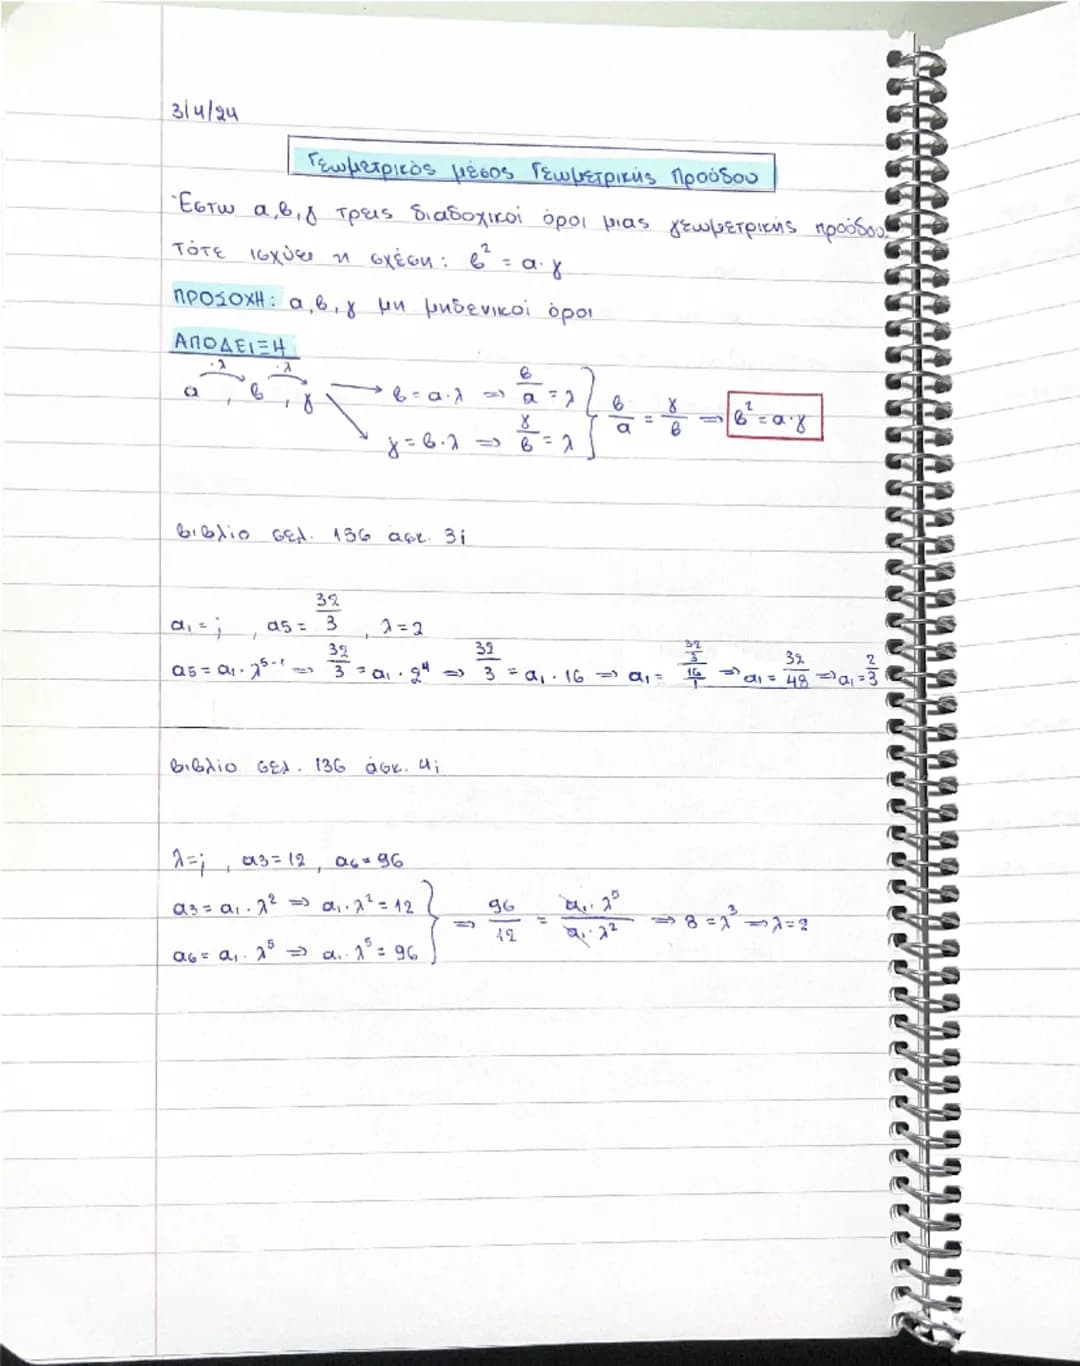 3/4/24
Γεωμετρικός μέσος Γεωμετρικής Προόδου
Έστω α,β,γ τρεις διαδοχικοί όροι μιας γεωμετρικής προόδου.
Τότε ισχύει η σχέση: β² = α·γ
ΠΡΟΣΟΧΗ: α,β,γ μη μηδενικοί όροι
ΑΠΟΔΕΙΞΗ
·λ ·λ
α, β, γ → β = α·λ ⇒ β/α = λ
γ = β·λ ⇒ γ/β = λ } β/α = γ/β ⇒ β² = α·γ
βιβλίο σελ. 136 ασκ. 3i
α₁ = ; , α5 = 32/3 , λ = 2
α5 = α₁·λ⁵⁻¹ ⇒ 32/3 = α₁·2⁴ ⇒ 32/3 = α₁·16 ⇒ α₁ = (32/3)/(16/1) ⇒ α₁ = 32/48 ⇒ α₁ = 2/3
βιβλίο σελ. 136 άσκ. 4i
λ = ; , α3 = 12 , α6 = 96
α3 = α₁·λ² ⇒ α₁·λ² = 12
α6 = α₁·λ⁵ ⇒ α₁·λ⁵ = 96 } ⇒ 96/12 = α₁·λ⁵/α₁·λ² ⇒ 8 = λ³ ⇒ λ = 2